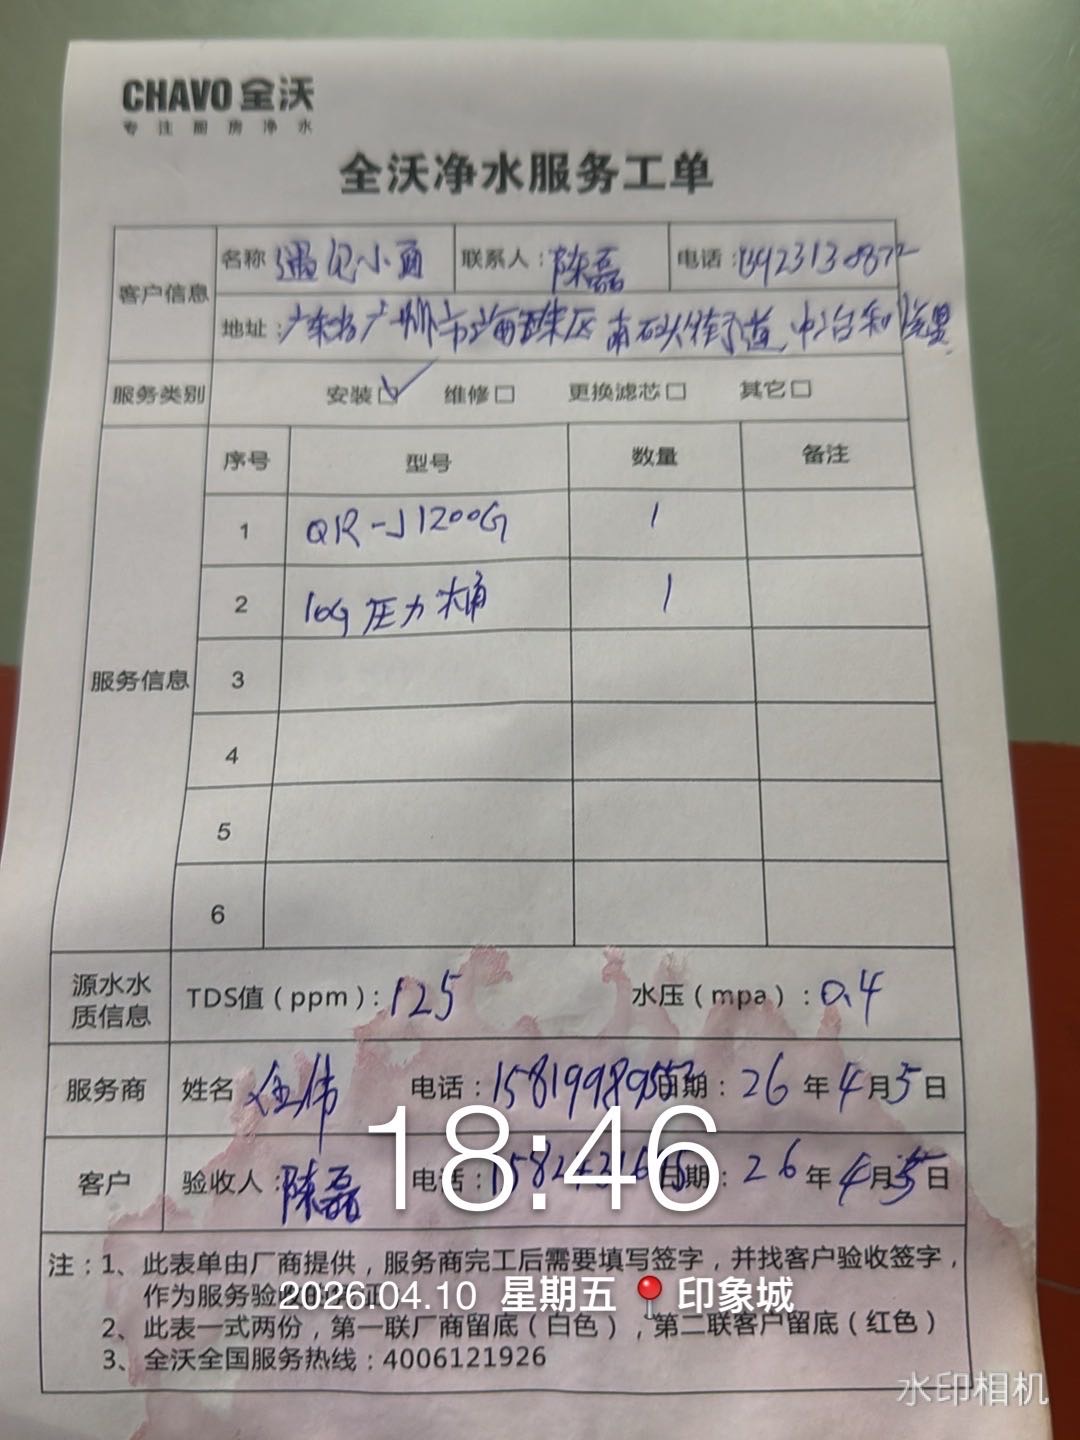 CHAVO 全沃
专注厨房净水
全沃净水服务工单
客户信息 名称 遇见小面 联系人：陈磊 电话：
地址：广东省广州市海珠区南石头街道
服务类别 安装☑ 维修□ 更换滤芯□ 其它□
服务信息
序号 型号 数量 备注
1 QR-J1200G 1
2 10G 压力桶 1
3
4
5
6
源水水质信息 TDS值（ppm）：125 水压（mpa）：0.4
服务商 姓名 电话： 日期：26年4月5日
客户 验收人：陈磊 电话： 日期：26年4月5日
18:46
注：1、此表单由厂商提供，服务商完工后需要填写签字，并找客户验收签字，
作为服务验收的凭证
2026.04.10 星期五 📍印象城
2、此表一式两份，第一联厂商留底（白色），第二联客户留底（红色）
3、全沃全国服务热线：4006121926
水印相机